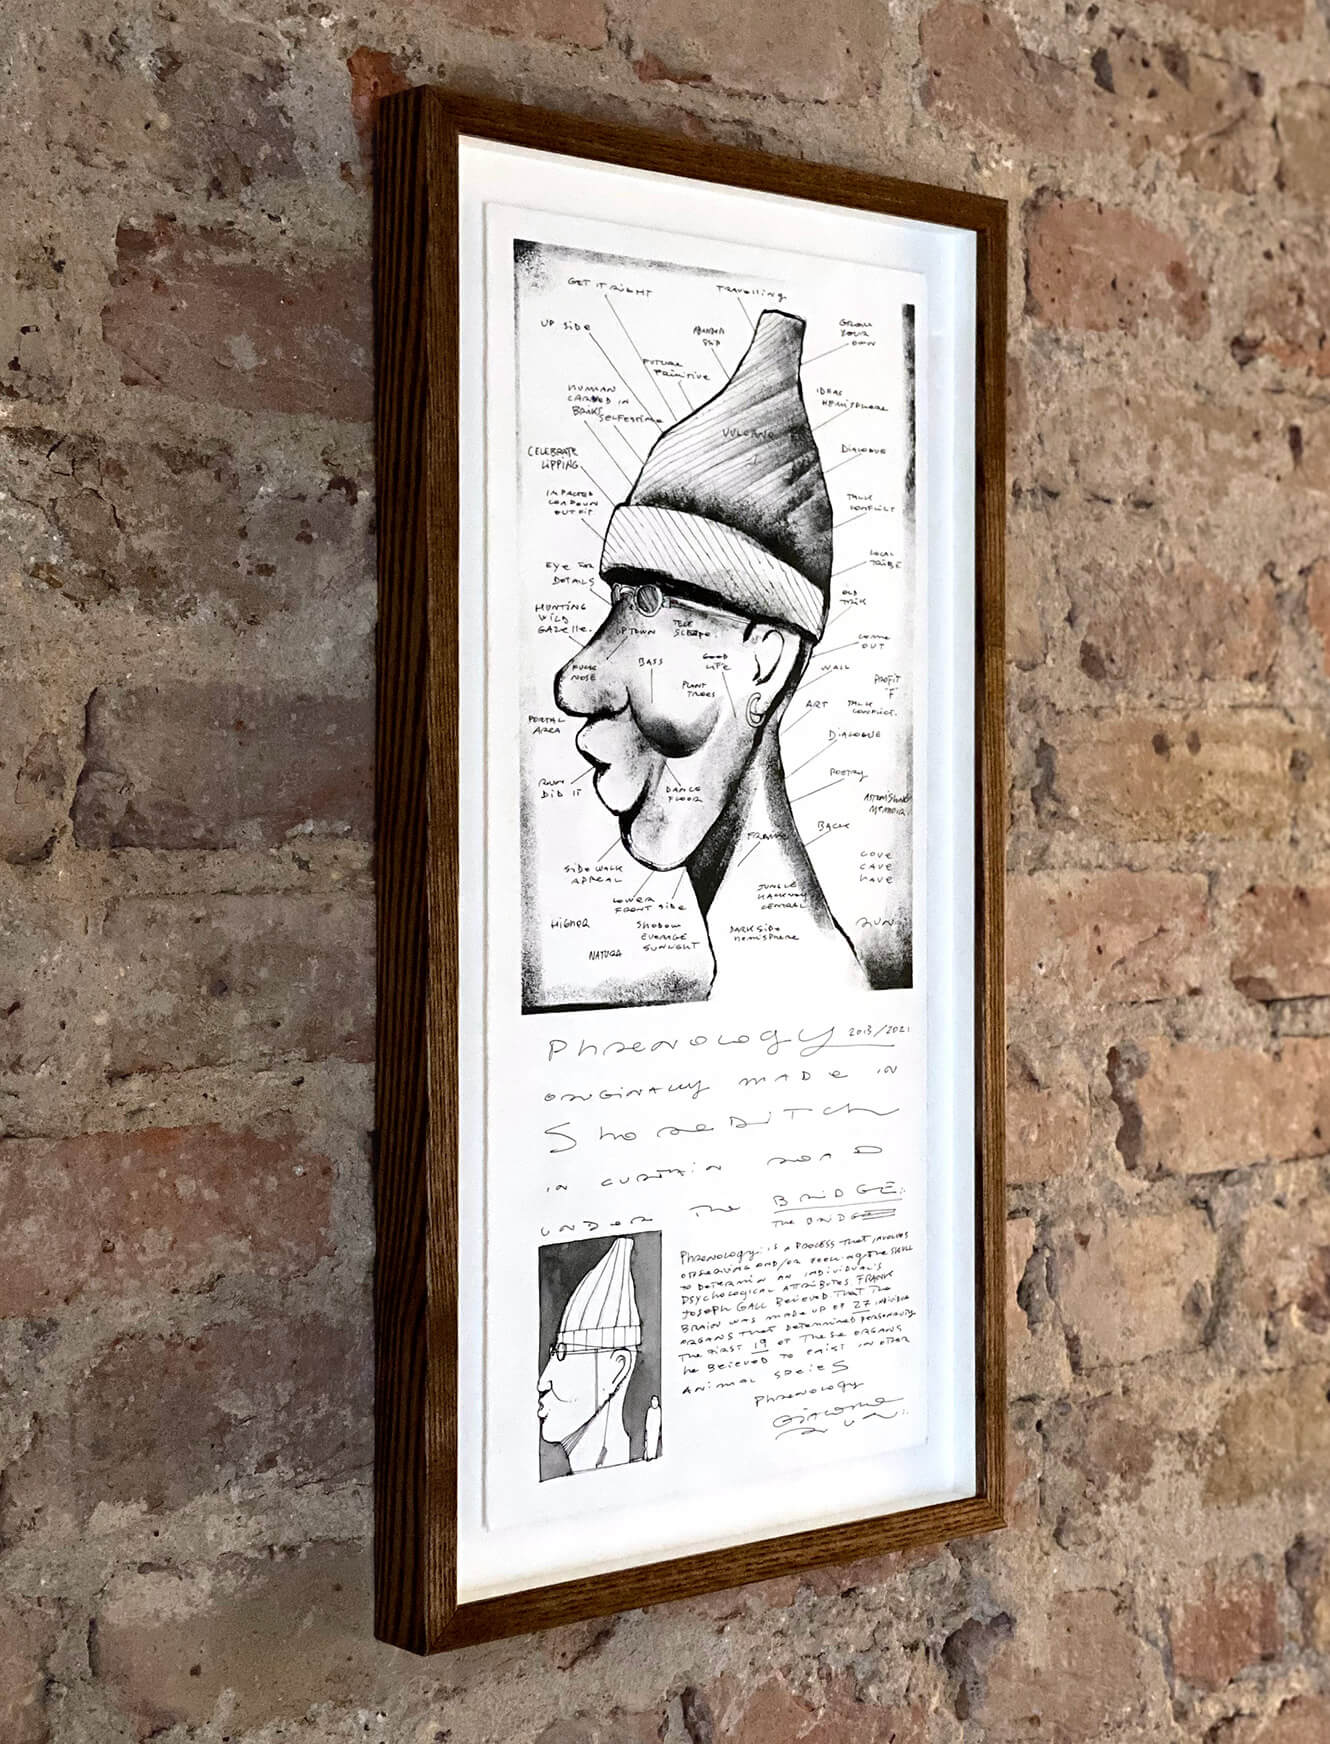 GET IT RIGHT
TRAVELLING
UP SIDE
GROW
YOUR
OWN
FUTURE
PRIMITIVE
HUMAN
CARVED IN
SELFESTIME
IDEAS
HEMISPHERE
VULCANO
CELEBRATE
LIPPING
DIALOGUE
IMPACTED
OUTFIT
TALK
CONFLICT
EYE FOR
DETAILS
LOCAL
TRIBE
OLD
HUNTING
WILD
GAZELLE.
UPTOWN
TELE
COME
OUT
FUCK
NOSE
BASS
GOOD
LIFE
WALL
PLANT
TREES
PROFIT
"F"
PORTAL
AREA
ART
TALK
CONFLICT.
DIALOGUE
RUN
DID IT
DANCE
FLOOR
POETRY
BACK
SIDEWALK
APPEAL
LOVE
CAVE
HAVE
LOWER
FRONT SIDE
JUNGLE
HACKNEY
CENTRAL
HIGHER
SHADOW
AVERAGE
SUNLIGHT
DARK SIDE
HEMISPHERE
RUN
NATURA
PHRENOLOGY 2013/2021
ORIGINALLY MADE IN
SHOREDITCH
IN CURTAIN ROAD
UNDER THE BRIDGE.
THE BRIDGE
PHRENOLOGY: IS A PROCESS THAT INVOLVES
OBSERVING AND/OR FEELING THE SKULL
TO DETERMIN AN INDIVIDUAL'S
PSYCHOLOGICAL ATTRIBUTES FRANK
JOSEPH GALL BELIEVED THAT THE
BRAIN WAS MADE UP OF 27 INDIVIDUAL
ORGANS THAT DETERMINED PERSONALITY
THE FIRST 19 OF THESE ORGANS
HE BELIEVED TO EXIST IN OTHER
ANIMAL SPECIES
PHRENOLOGY
GIACOMO
RUN.